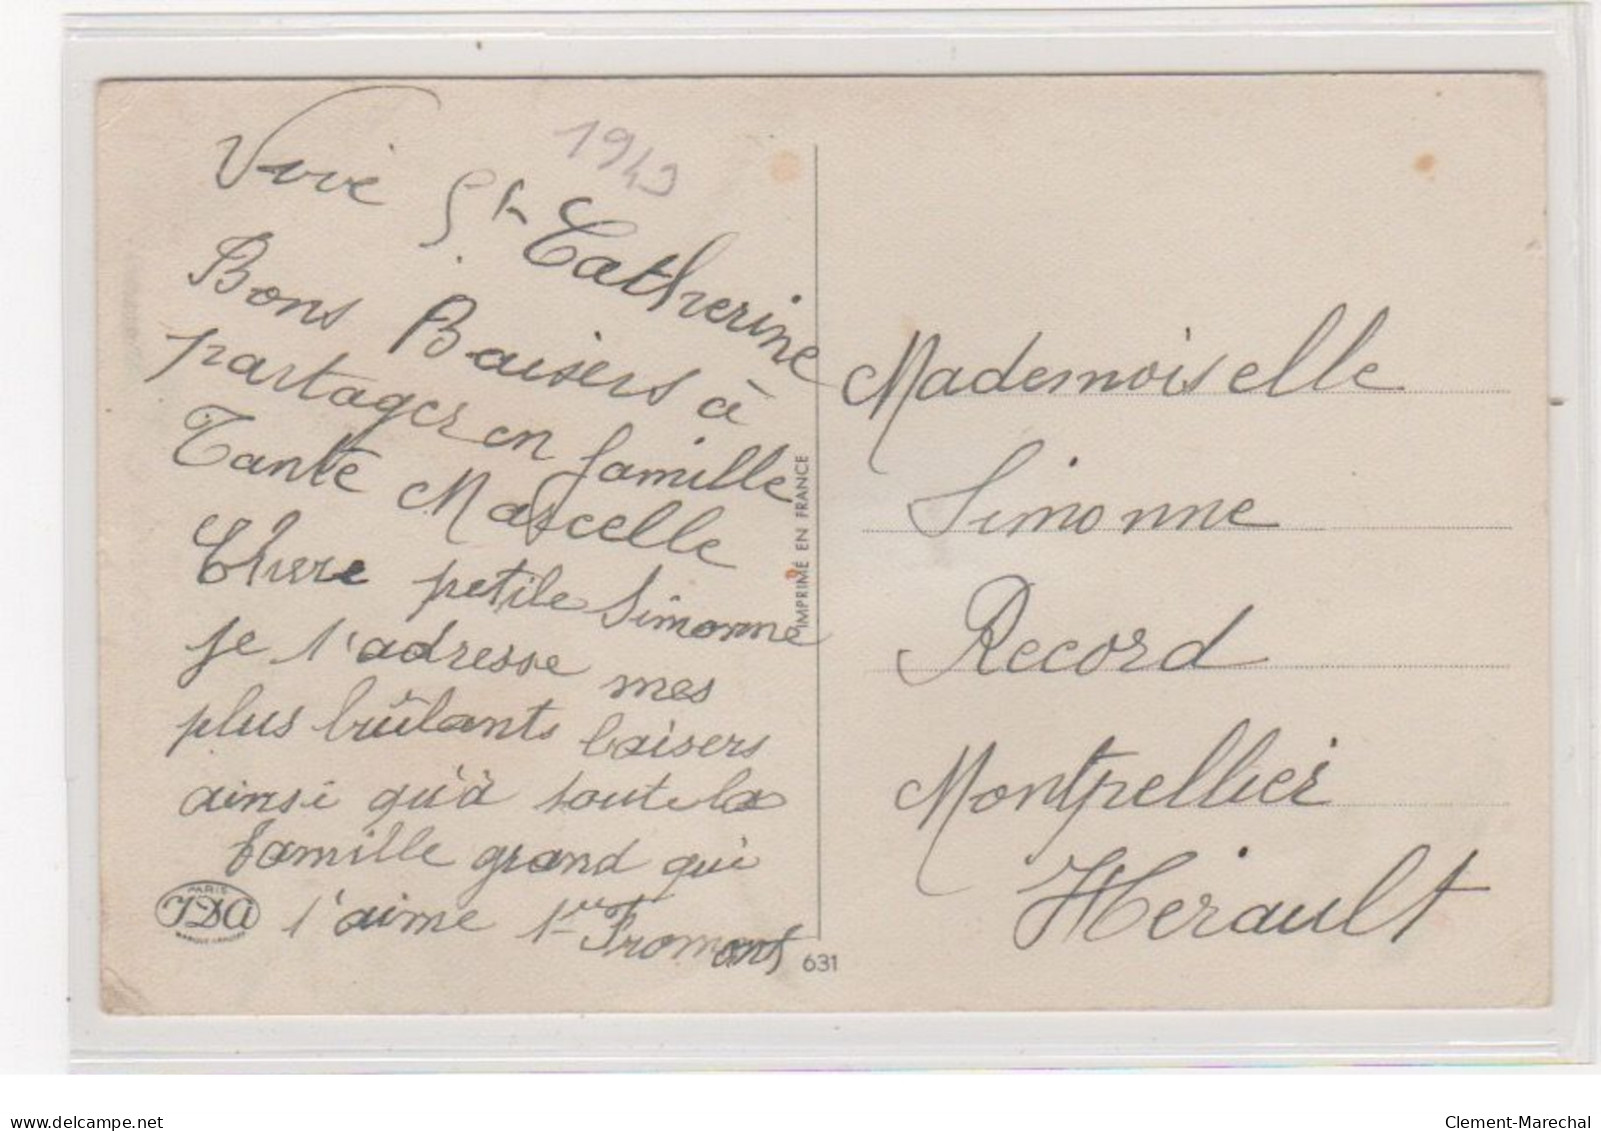 1949
Vive St Catherine
Bons Baisers à
partager en famille
Tante Marcelle
Chere petite Simonne
je t'adresse mes
plus brûlants baisers
ainsi qu'à toute la
famille grand qui
t'aime
631
PARIS
IDA
IMPRIMÉ EN FRANCE
Mademoiselle
Simonne
Record
Montpellier
Herault
www.delcampe.net
Clement-Marechal